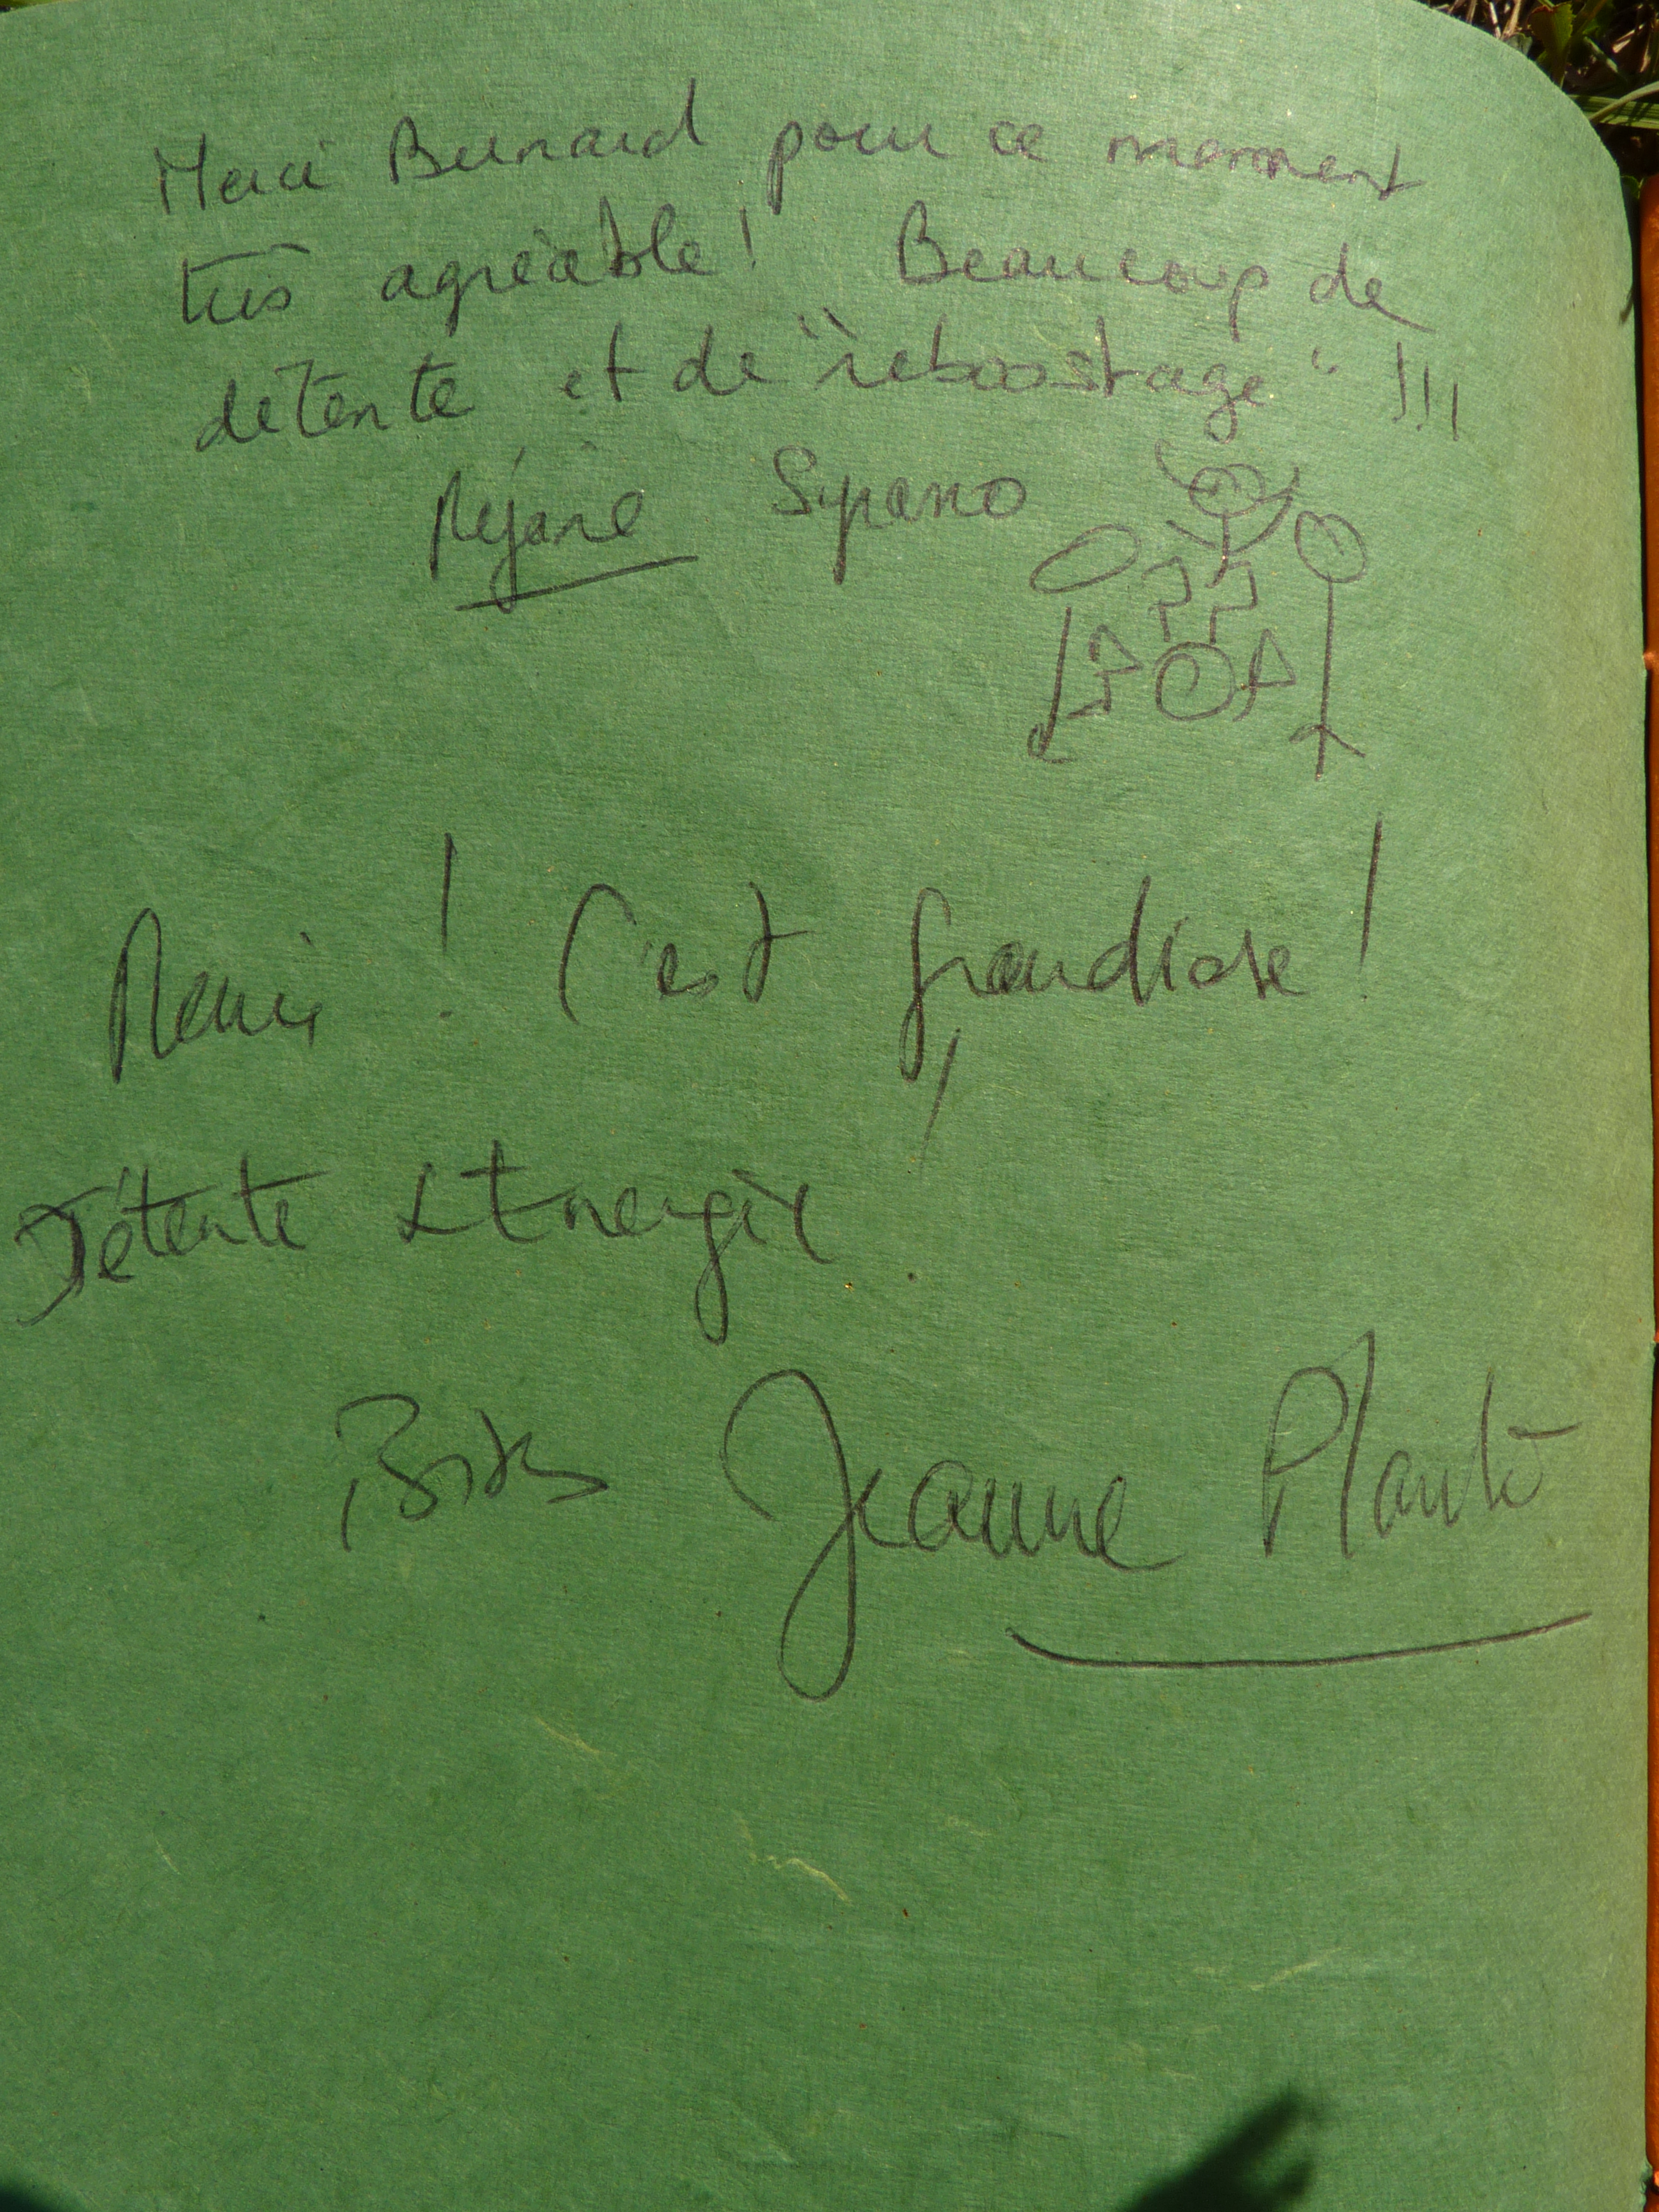 Merci Bernard pour ce moment
très agréable ! Beaucoup de
détente et de "reboostage" !!!
Réjane Sypano
Merci ! C'est grandiose !
Détente & Energie
Jeanne Planté